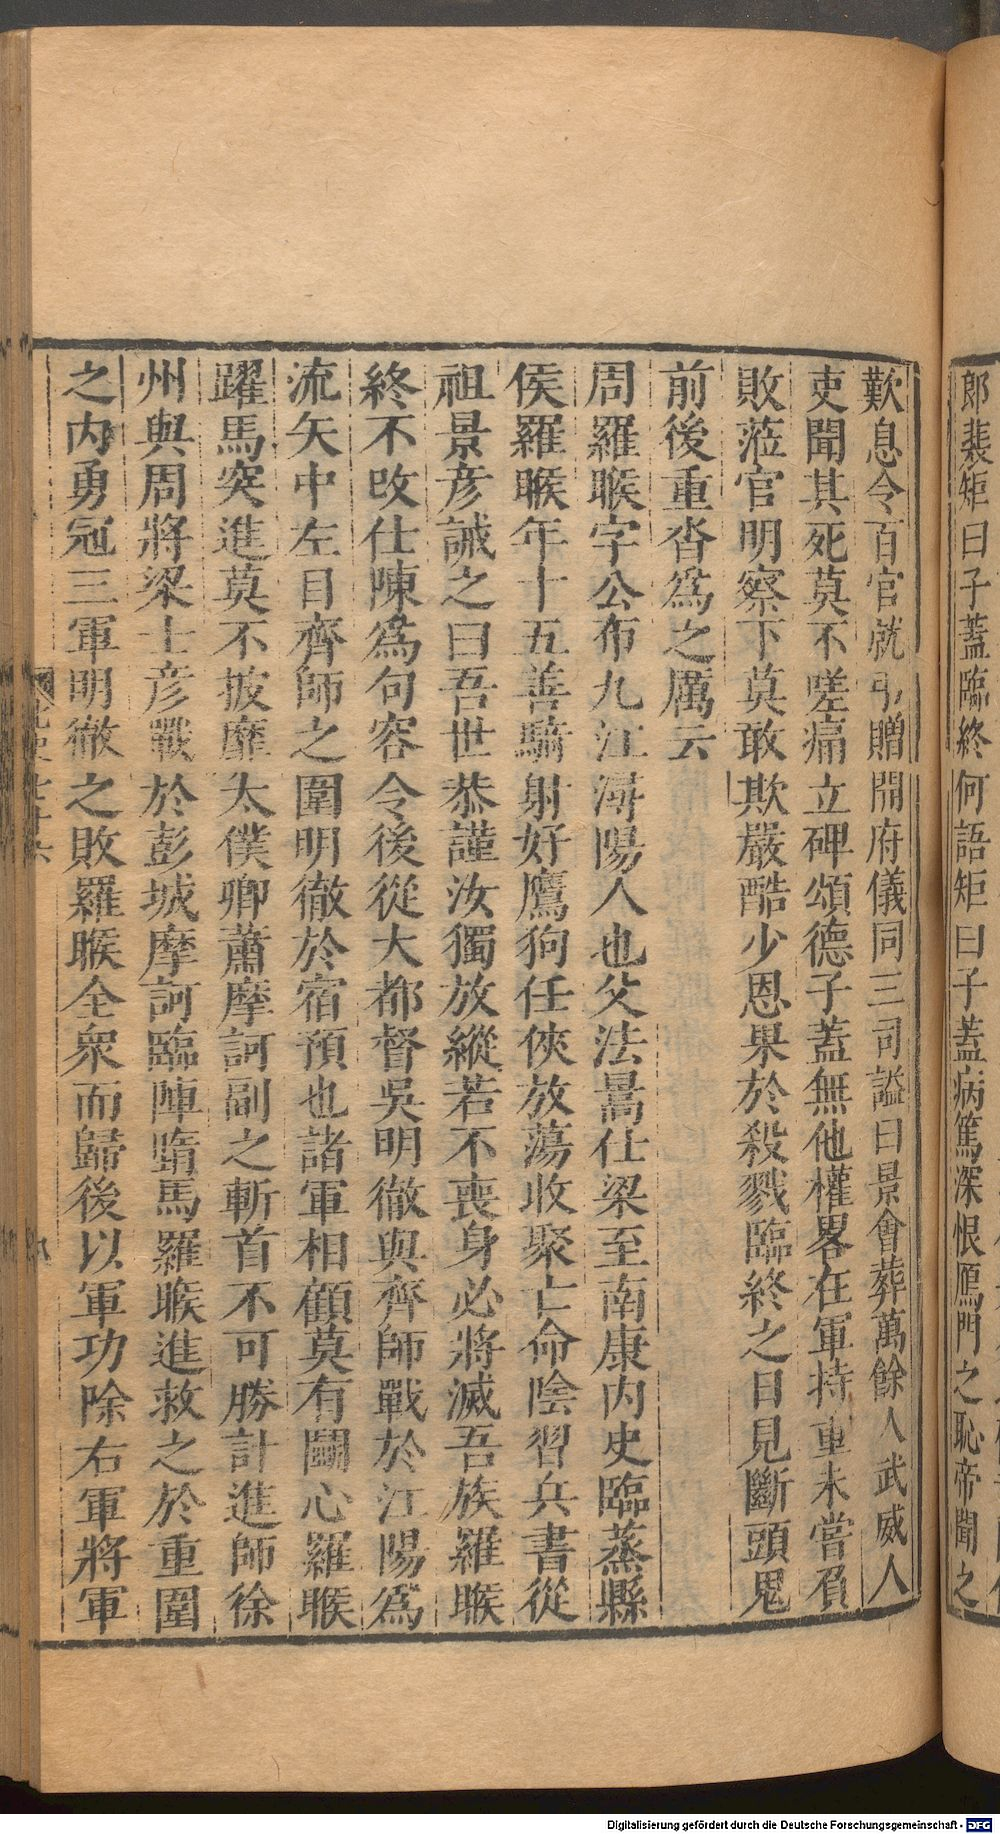 郎裴矩曰子蓋臨終何語矩曰子蓋病篤深恨鴈門之恥帝聞之
歎息令百官就弔贈開府儀同三司謚曰景會葬萬餘人武威人
吏聞其死莫不嗟痛立碑頌德子蓋無他權畧在軍持重未嘗負
敗蒞官明察下莫敢欺嚴酷少恩果於殺戮臨終之日見斷頭鬼
前後重沓爲之厲云
周羅睺字公布九江潯陽人也父法暠仕梁至南康内史臨蒸縣
侯羅睺年十五善騎射好鷹狗任俠放蕩收聚亡命陰習兵書從
祖景彦誡之曰吾世恭謹汝獨放縱若不喪身必將滅吾族羅睺
終不改仕陳爲句容令後從大都督吳明徹與齊師戰於江陽爲
流矢中左目齊師之圍明徹於宿預也諸軍相顧莫有鬬心羅睺
躍馬突進莫不披靡太僕卿蕭摩訶副之斬首不可勝計進師徐
州與周將梁士彦戰於彭城摩訶臨陣墮馬羅睺進救之於重圍
之内勇冠三軍明徹之敗羅睺全衆而歸後以軍功除右軍將軍
Digitalisierung gefördert durch die Deutsche Forschungsgemeinschaft - DFG